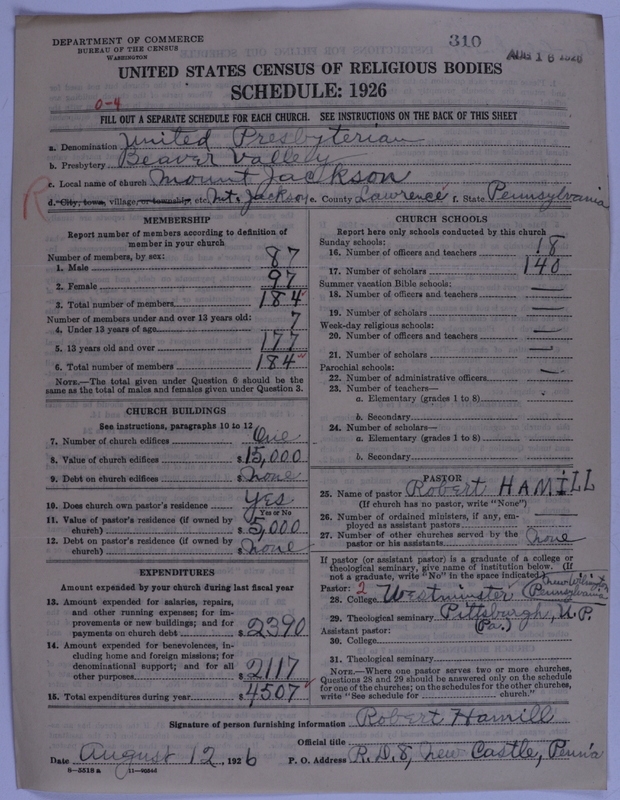 DEPARTMENT OF COMMERCE
BUREAU OF THE CENSUS
WASHINGTON
310
AUG 16 1926
UNITED STATES CENSUS OF RELIGIOUS BODIES
SCHEDULE: 1926
0-4
FILL OUT A SEPARATE SCHEDULE FOR EACH CHURCH. SEE INSTRUCTIONS ON THE BACK OF THIS SHEET
a. Denomination United Presbyterian
b. Presbytery Beaver Valley
c. Local name of church Mount Jackson
R
d. City, town, village, or township, etc. Mt. Jackson e. County Lawrence f. State Pennsylvania
MEMBERSHIP
Report number of members according to definition of
member in your church
Number of members, by sex:
1. Male 87
2. Female 97
3. Total number of members 184
Number of members under and over 13 years old:
4. Under 13 years of age 7
5. 13 years old and over 177
6. Total number of members 184
NOTE.—The total given under Question 6 should be the
same as the total of males and females given under Question 3.
CHURCH BUILDINGS
See instructions, paragraphs 10 to 12
7. Number of church edifices One
8. Value of church edifices $ 15,000
9. Debt on church edifices $ None
10. Does church own pastor's residence Yes
Yes or No
11. Value of pastor's residence (if owned by
church) $ 5,000
12. Debt on pastor's residence (if owned by
church) $ None
EXPENDITURES
Amount expended by your church during last fiscal year
13. Amount expended for salaries, repairs,
and other running expenses; for im-
provements or new buildings; and for
payments on church debt $ 2390
14. Amount expended for benevolences, in-
cluding home and foreign missions; for
denominational support; and for all
other purposes $ 2117
15. Total expenditures during year $ 4507
CHURCH SCHOOLS
Report here only schools conducted by this church
Sunday schools:
16. Number of officers and teachers 18
17. Number of scholars 140
Summer vacation Bible schools:
18. Number of officers and teachers —
19. Number of scholars —
Week-day religious schools:
20. Number of officers and teachers —
21. Number of scholars —
Parochial schools:
22. Number of administrative officers —
23. Number of teachers—
a. Elementary (grades 1 to 8)
b. Secondary
24. Number of scholars—
a. Elementary (grades 1 to 8)
b. Secondary
PASTOR
25. Name of pastor Robert HAMILL
(If church has no pastor, write "None")
26. Number of ordained ministers, if any, em-
ployed as assistant pastors —
27. Number of other churches served by the
pastor or his assistants None
If pastor (or assistant pastor) is a graduate of a college or
theological seminary, give name of institution below. (If
not a graduate, write "No" in the space indicated)
Pastor: 2 New Wilmington
28. College Westminster (Pennsylvania
29. Theological seminary Pittsburgh, U.P.
Assistant pastor: (Pa.)
30. College
31. Theological seminary
NOTE.—Where one pastor serves two or more churches,
Questions 28 and 29 should be answered only on the schedule
for one of the churches; on the schedules for the other churches,
write "See schedule for church."
Signature of person furnishing information Robert Hamill
Official title
Date August 12, 1926 P. O. Address R.D.8, New Castle, Penn'a
8-5518a 11-90546